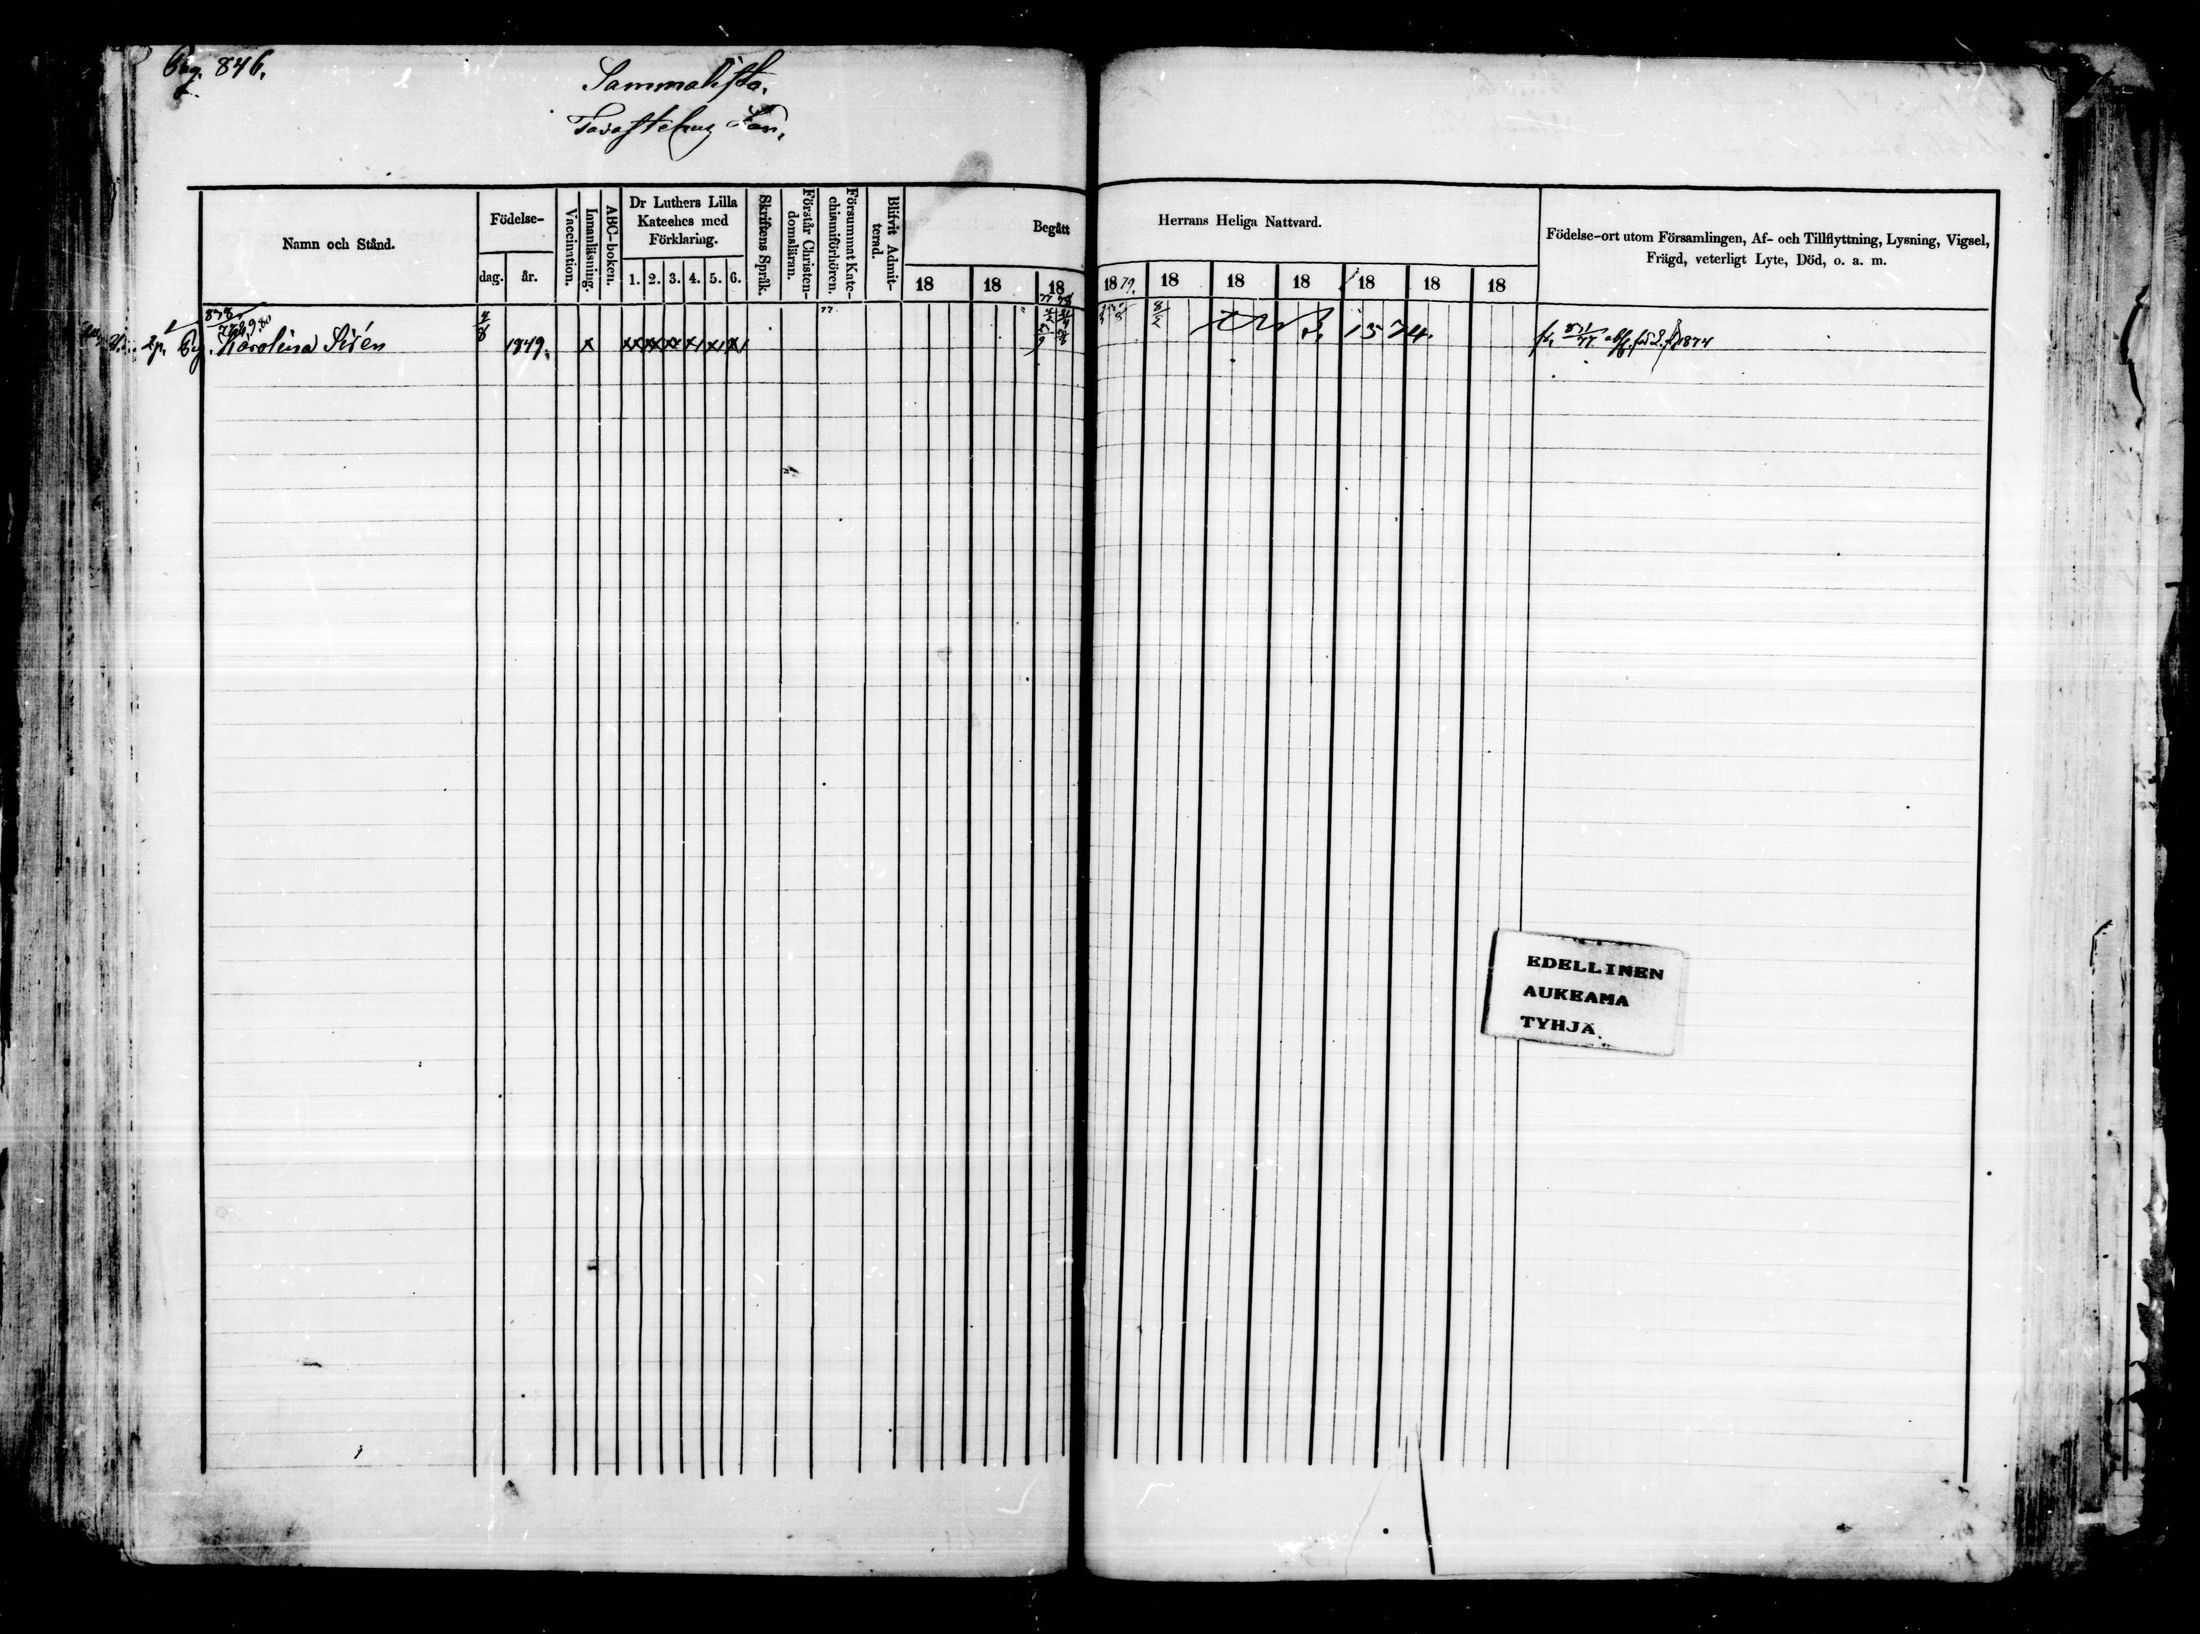 Pag. 846.
Sammalisto.
Tavastehus Län.
Namn och Stånd.
Födelse-
dag. år.
Vaccination.
Innanläsning.
ABC-boken.
Dr Luthers Lilla
Kateches med
Förklaring.
1. 2. 3. 4. 5. 6.
Skriftens Språk.
Förstår Christen-
domsläran.
Försummat Kate-
chismiförhören.
Blifvit Admit-
terad.
Begått Herrans Heliga Nattvard.
18 18 18 1879. 18 18 18 18 18 18
77 78
Födelse-ort utom Församlingen, Af- och Tillflyttning, Lysning, Vigsel,
Frägd, veterligt Lyte, Död, o. a. m.
878
Karolina Sirén 4/8 1849. x x x x x x x 8/2 1574.
1874
EDELLINEN
AUKEAMA
TYHJA